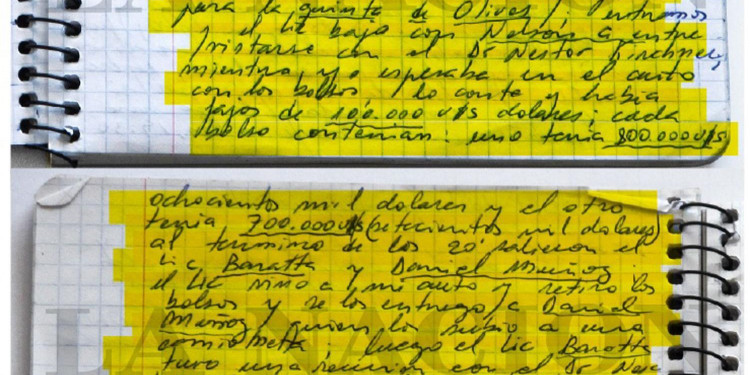 para la quinta de Olivos / entramos
y el lic bajo con Nelson a entre
/vistarse con el Dr Nestor Kirchner,
mientras yo esperaba en el auto
con los bolsos, lo conte y habia
fajos de 100.000 U$S dolares; cada
bolso contenian: uno tenia 800.000U$S
ochocientos mil dolares y el otro
tenia 700.000U$S (setecientos mil dolares)
al termino de los 20' salieron el
Lic Baratta y Daniel Muñoz.
el Lic vino a mi auto y retiro los
bolsos y se los entrego a Daniel
Muñoz, quien los subio a una
camioneta; luego el Lic Baratta
tuvo una reunion con el Dr
LA NACION
LA NACION